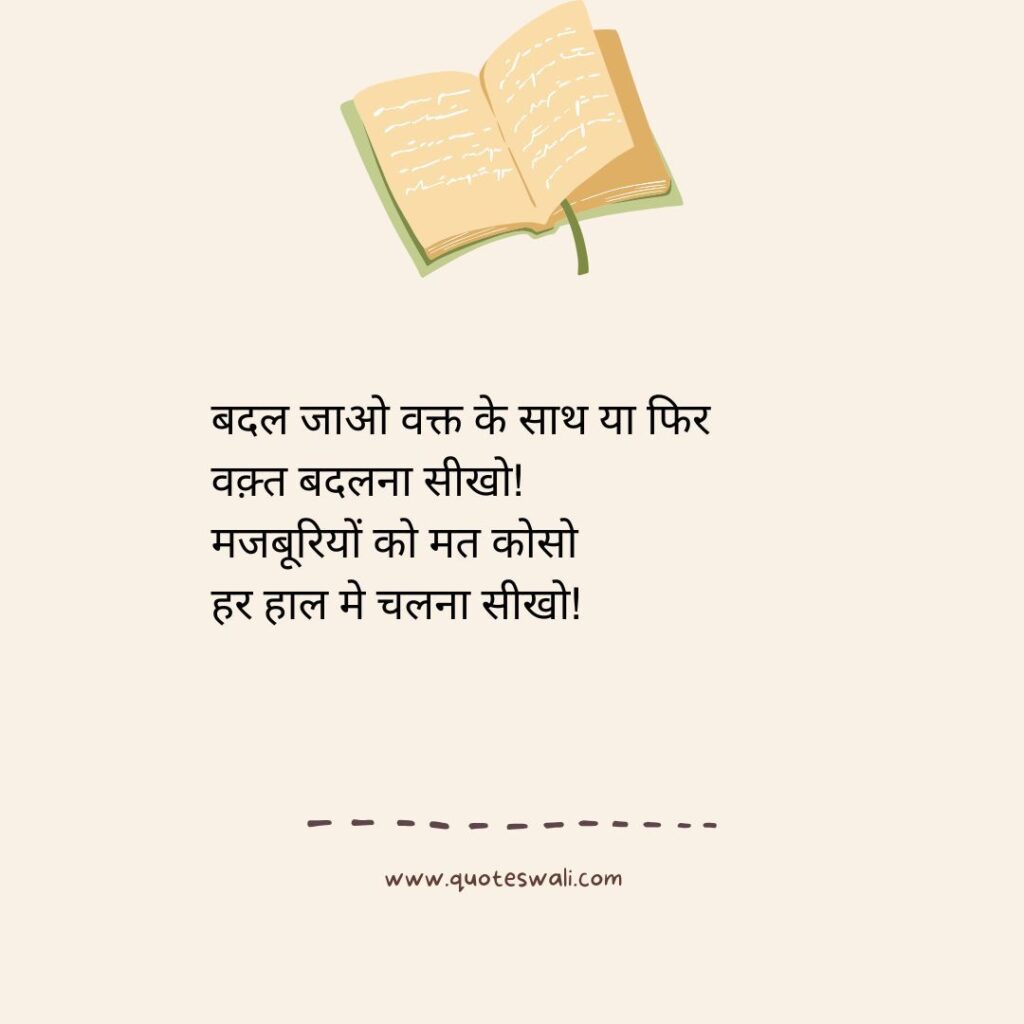 बदल जाओ वक्त के साथ या फिर
वक़्त बदलना सीखो!
मजबूरियों को मत कोसो
हर हाल मे चलना सीखो!
www.quoteswali.com